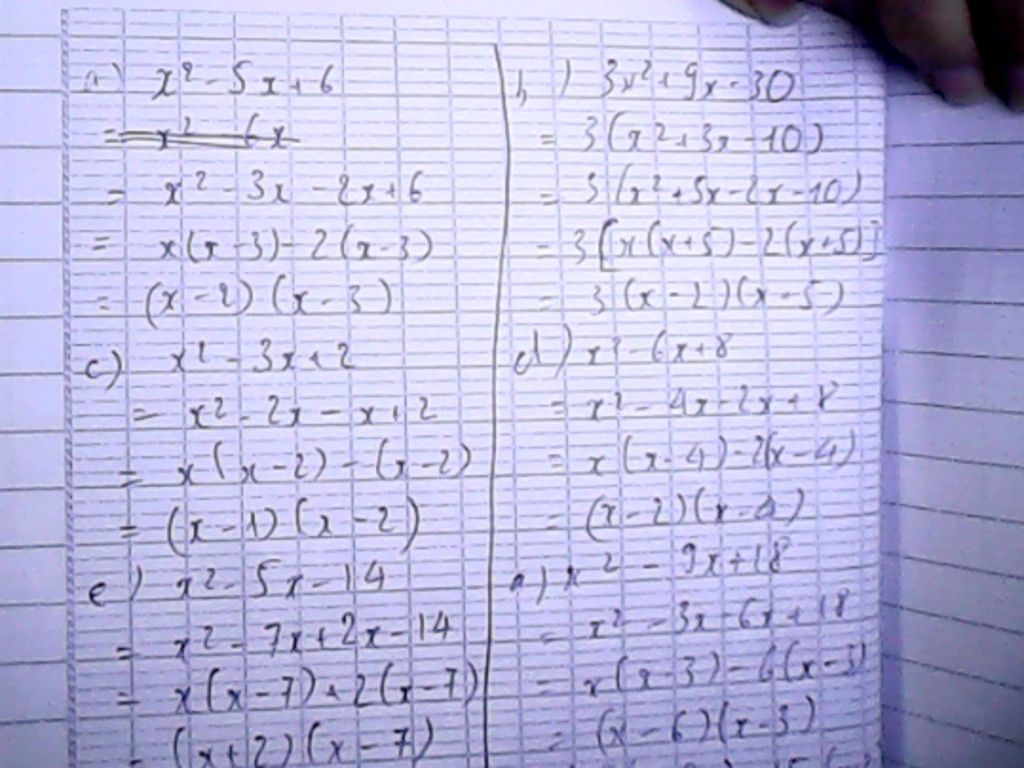 a) x² - 5x + 6
= x² - 6x
= x² - 3x - 2x + 6
= x(x - 3) - 2(x - 3)
= (x - 2)(x - 3)
c) x² - 3x + 2
= x² - 2x - x + 2
= x(x - 2) - (x - 2)
= (x - 1)(x - 2)
e) x² - 5x - 14
= x² - 7x + 2x - 14
= x(x - 7) + 2(x - 7)
= (x + 2)(x - 7)
b) 3x² + 9x - 30
= 3(x² + 3x - 10)
= 3(x² + 5x - 2x - 10)
= 3[x(x + 5) - 2(x + 5)]
= 3(x - 2)(x - 5)
d) x² - 6x + 8
= x² - 4x - 2x + 8
= x(x - 4) - 2(x - 4)
= (x - 2)(x - 4)
a) x² - 9x + 18
= x² - 3x - 6x + 18
= x(x - 3) - 6(x - 3)
= (x - 6)(x - 3)